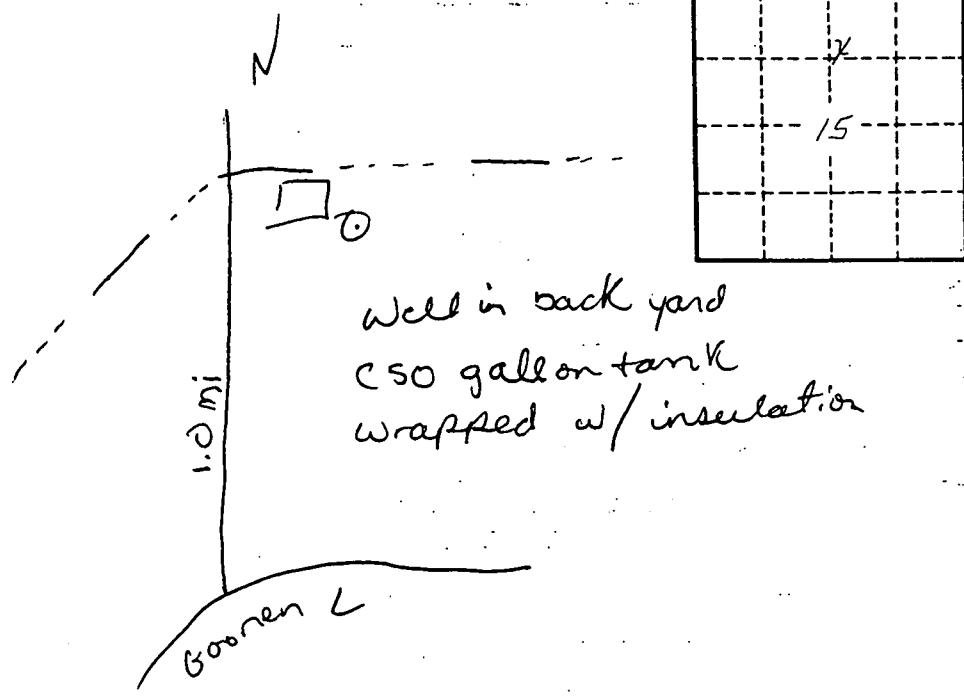 N
x
15
Well in back yard
c 50 gallon tank
wrapped w/ insulation
1.0 mi
L